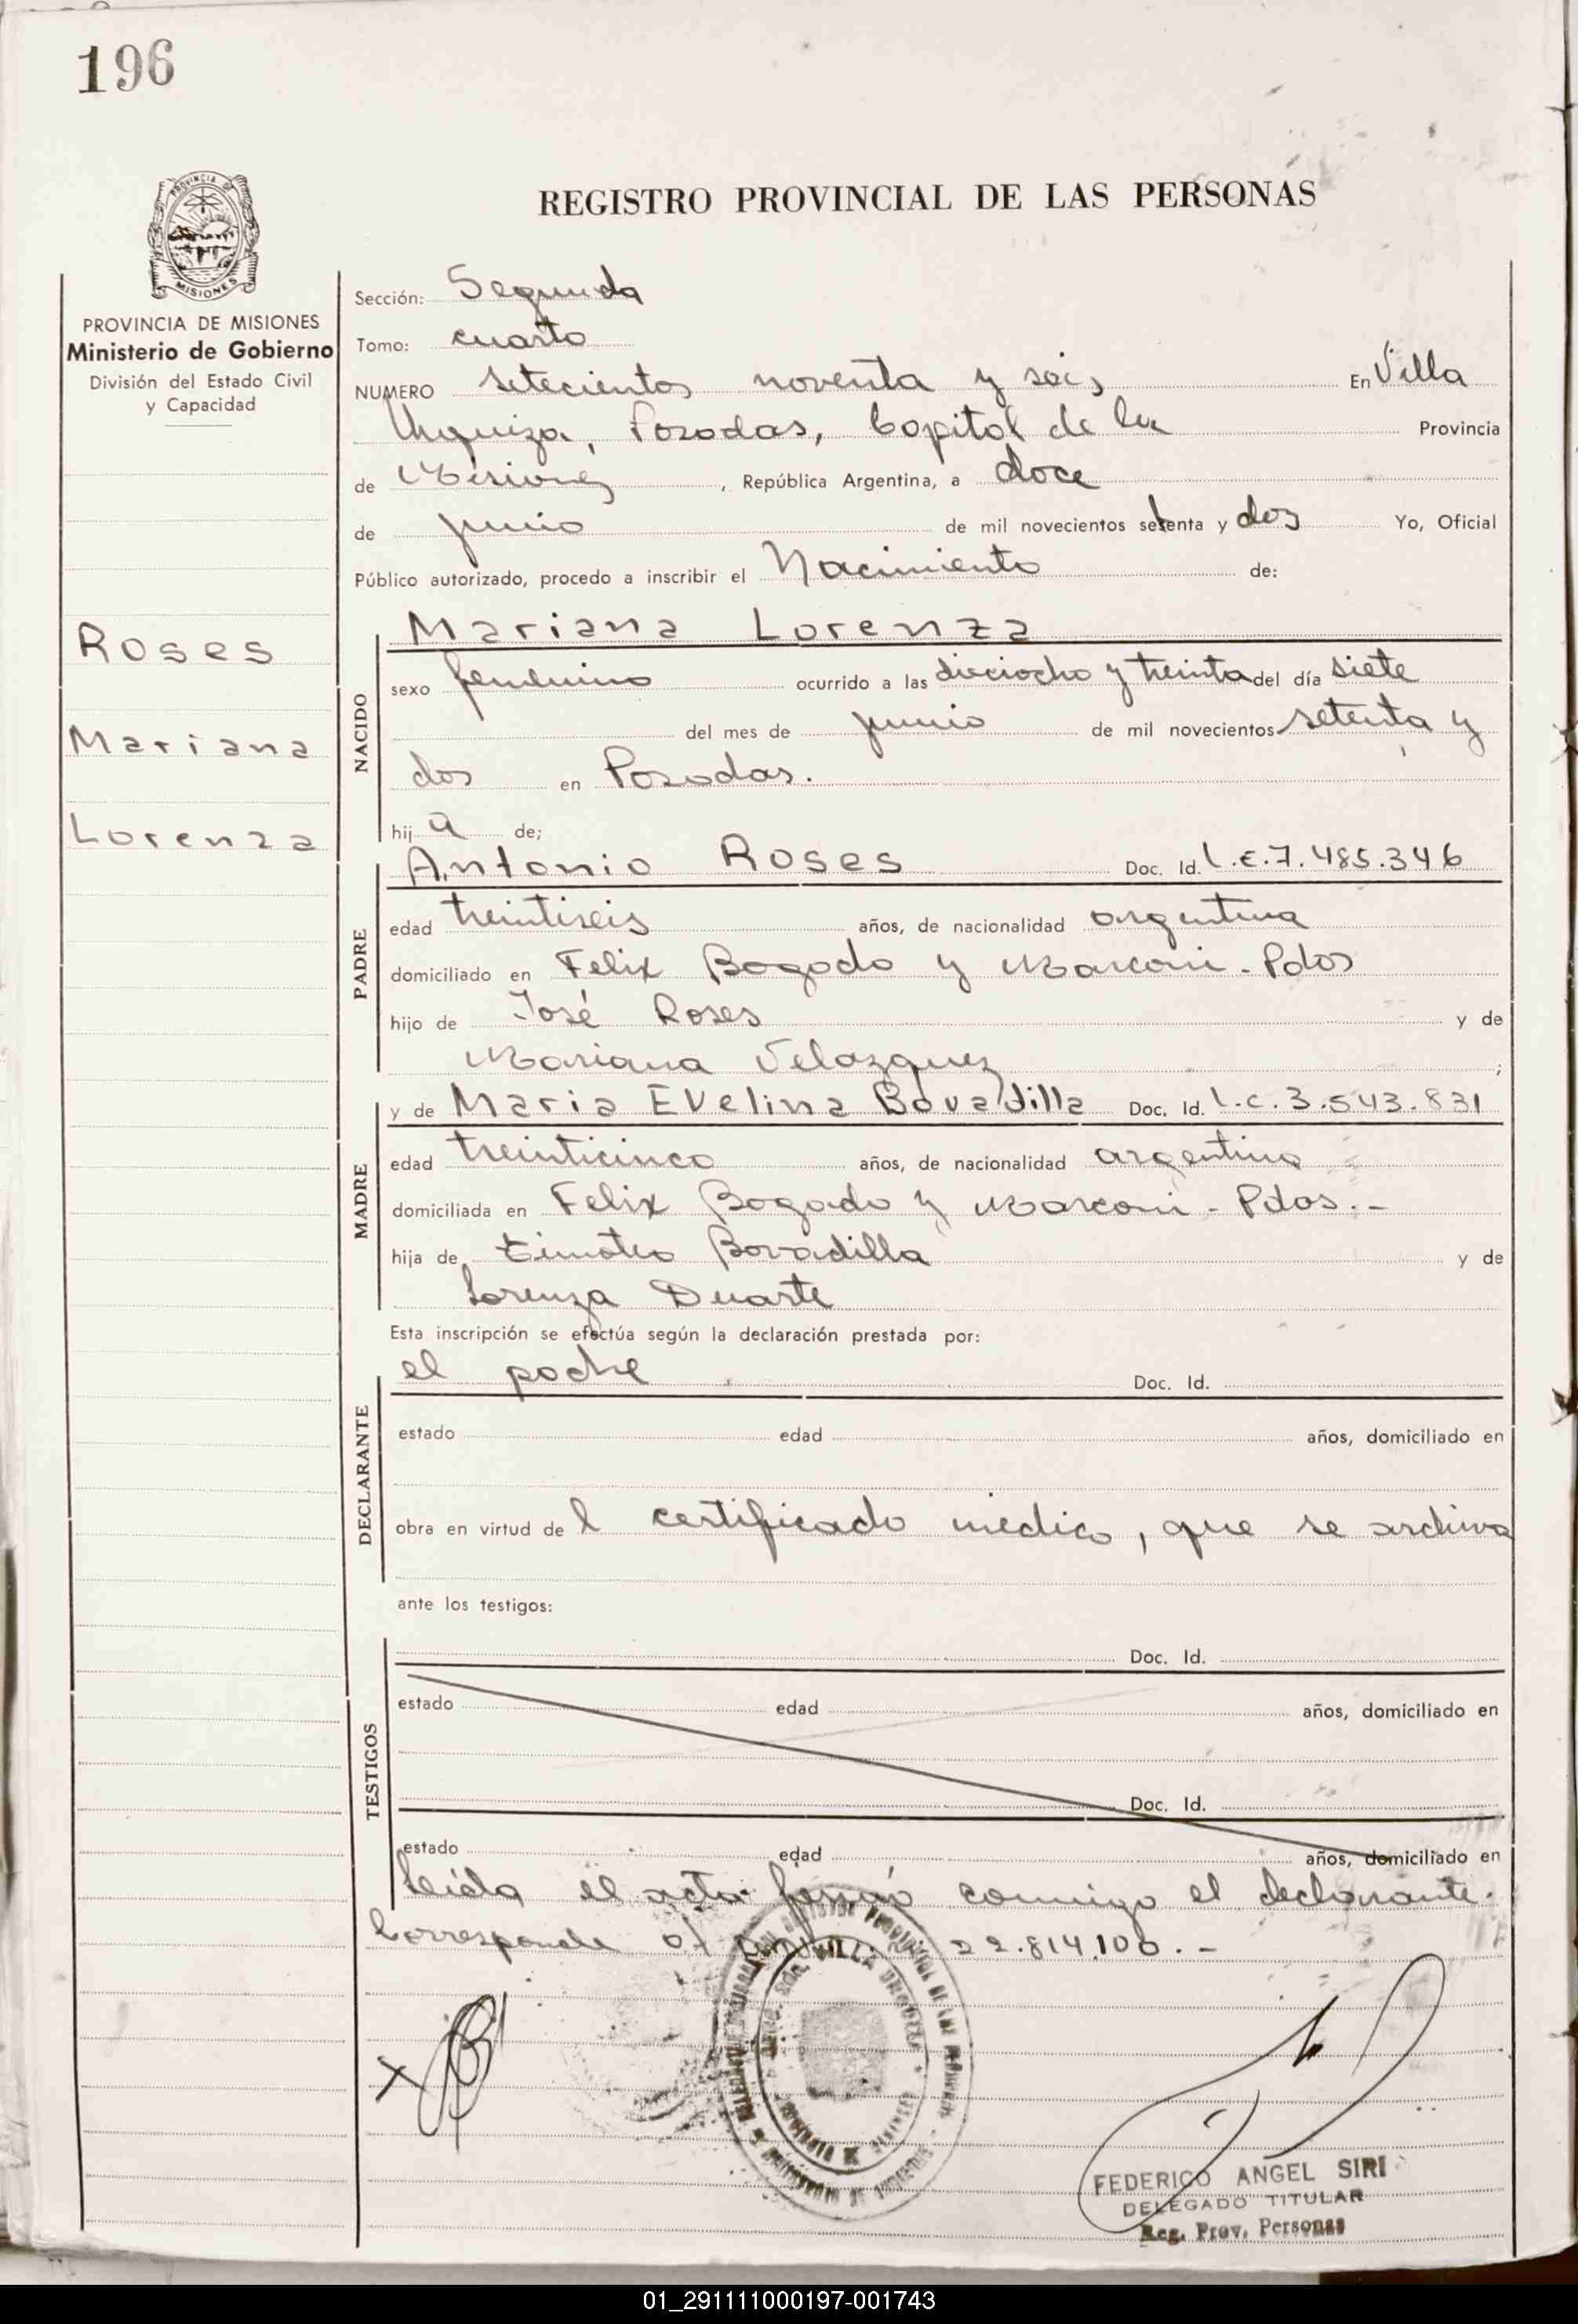 196
PROVINCIA DE
MISIONES
PROVINCIA DE MISIONES
Ministerio de Gobierno
División del Estado Civil
y Capacidad
Roses
Mariana
Lorenza
REGISTRO PROVINCIAL DE LAS PERSONAS
Sección: Segunda
Tomo: cuarto
NUMERO setecientos noventa y seis En Villa
Urquiza, Posadas, Capital de la Provincia
de Misiones, República Argentina, a doce
de junio de mil novecientos setenta y dos Yo, Oficial
Público autorizado, procedo a inscribir el Nacimiento de:
Mariana Lorenza
NACIDO
sexo femenino ocurrido a las dieciocho y treinta del día siete
del mes de junio de mil novecientos setenta y
dos en Posadas.
hij a de;
Antonio Roses Doc. Id. L.E.7.485.346
PADRE
edad treintiseis años, de nacionalidad argentina
domiciliado en Felix Bogado y Marconi - Pdas
hijo de José Roses y de
Mariana Velazquez;
y de Maria Evelina Bovadilla Doc. Id. L.C.3.543.831
MADRE
edad treinticinco años, de nacionalidad argentina
domiciliada en Felix Bogado y Marconi - Pdas.-
hija de Timoteo Bovadilla y de
Lorenza Duarte
Esta inscripción se efectúa según la declaración prestada por:
el padre Doc. Id.
DECLARANTE
estado edad años, domiciliado en
obra en virtud de l certificado médico, que se archiva
ante los testigos:
Doc. Id.
TESTIGOS
estado edad años, domiciliado en
Doc. Id.
estado edad años, domiciliado en
Leída el acta firmó conmigo el declarante.
Corresponde 22.814.100.-
VILLA URQUIZA
FEDERICO ANGEL SIRI
DELEGADO TITULAR
Reg. Prov. Personas
01_291111000197-001743